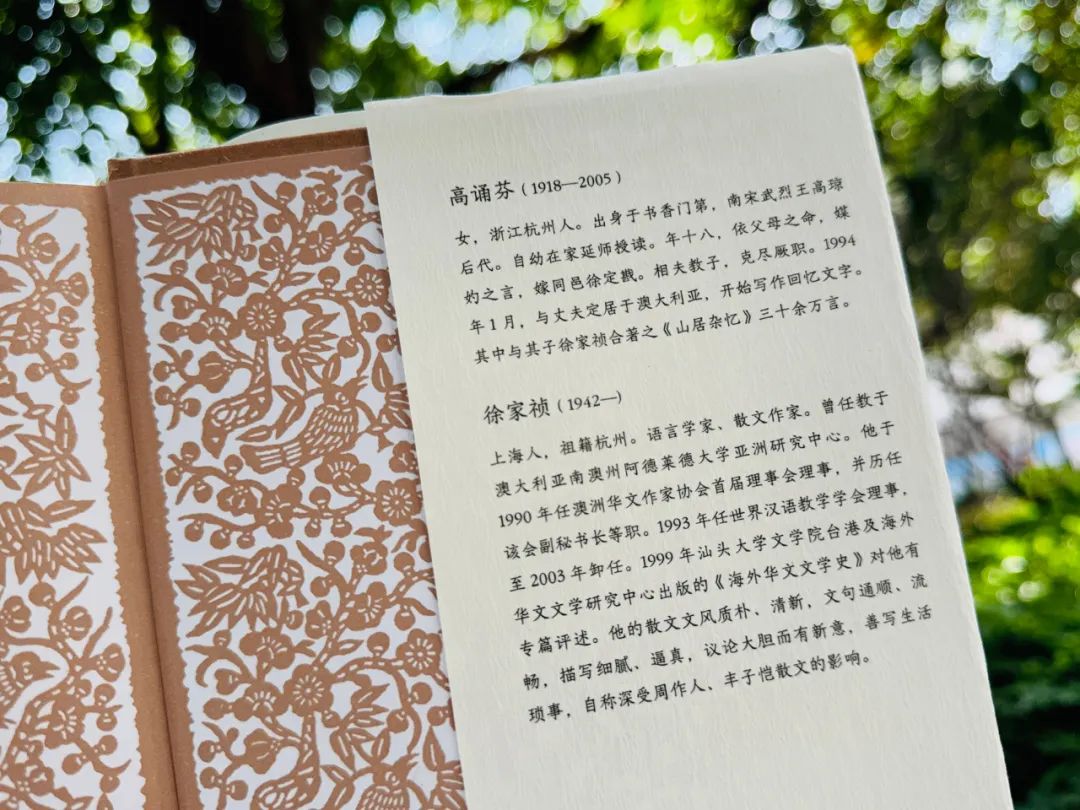 高诵芬（1918—2005）
女，浙江杭州人。出身于书香门第，南宋武烈王高琼
后代。自幼在家延师授读。年十八，依父母之命，媒
妁之言，嫁同邑徐定戡。相夫教子，克尽厥职。1994
年1月，与丈夫定居于澳大利亚，开始写作回忆文字。
其中与其子徐家祯合著之《山居杂忆》三十余万言。
徐家祯（1942—）
上海人，祖籍杭州。语言学家、散文作家。曾任教于
澳大利亚南澳州阿德莱德大学亚洲研究中心。他于
1990年任澳洲华文作家协会首届理事会理事，并历任
该会副秘书长等职。1993年任世界汉语教学学会理事，
至2003年卸任。1999年汕头大学文学院台港及海外
华文文学研究中心出版的《海外华文文学史》对他有
专篇评述。他的散文文风质朴、清新，文句通顺、流
畅，描写细腻、逼真，议论大胆而有新意，善写生活
琐事，自称深受周作人、丰子恺散文的影响。